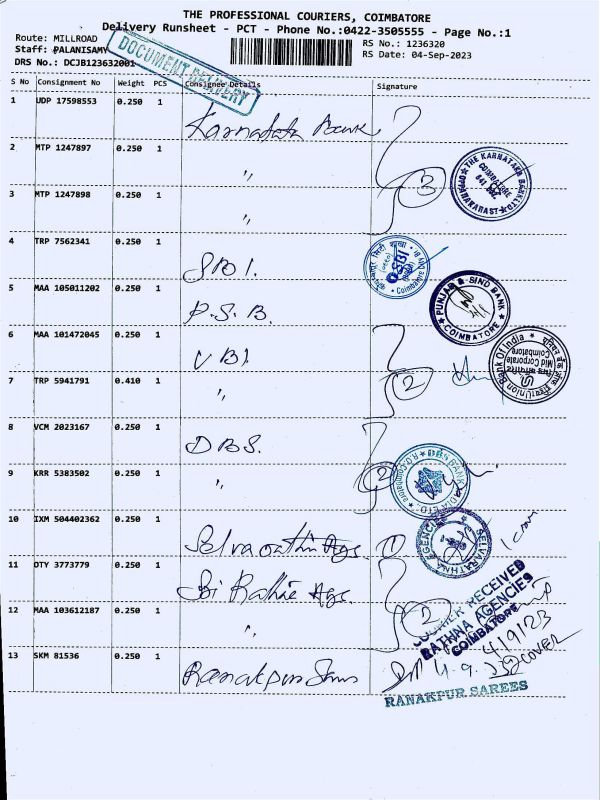 THE PROFESSIONAL COURIERS, COIMBATORE
Delivery Runsheet - PCT - Phone No.:0422-3505555 - Page No.:1
Route: MILLROAD
RS No.: 1236320
Staff: PALANISAMY
RS Date: 04-Sep-2023
DRS No.: DCJB123632001
DOCUMENT DELIVERY
S No Consignment No Weight PCS Consignee Details Signature
1 UDP 17598553 0.250 1 Karnataka Bank
2 MTP 1247897 0.250 1 "
3 MTP 1247898 0.250 1 "
3
THE KARNATAKA BANK LTD
COIMBATORE
4 TRP 7562341 0.250 1 SBI.
SBI
Coimbatore
5 MAA 105011202 0.250 1 P.S.B.
PUNJAB & SIND BANK
COIMBATORE
6 MAA 101472045 0.250 1 UBI
7 TRP 5941791 0.410 1 "
2
Union Bank Of India
Mid Corporate
Coimbatore
8 VCM 2023167 0.250 1 DBS.
9 KRR 5383502 0.250 1 "
2
DBS BANK
10 IXM 504402362 0.250 1 Selvarathna Ags.
1
SELVARATHNA AGENCIES
11 OTY 3773779 0.250 1 Sri Rathna Ags.
12 MAA 103612187 0.250 1 "
2
COURIER RECEIVED
RATHNA AGENCIES
COIMBATORE
4/9/23
13 SKM 81536 0.250 1 Ranakpur
COVER
RANAKPUR SAREES